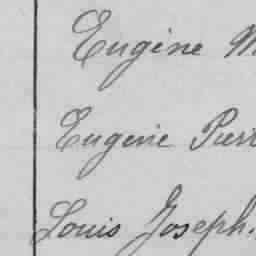 Eugène M
Eugenie Pierr
Louis Joseph.